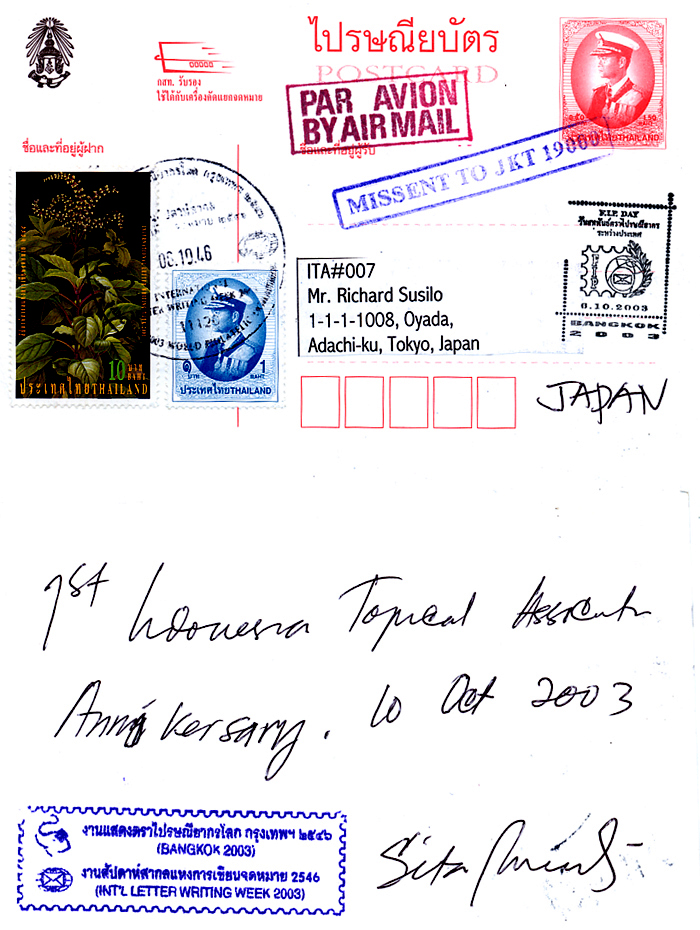 ไปรษณียบัตร
POSTCARD
กสท. รับรอง
ใช้ได้กับเครื่องคัดแยกจดหมาย
PAR AVION
BY AIR MAIL
ชื่อและที่อยู่ผู้ฝาก
ชื่อและที่อยู่ผู้รับ
MISSENT TO JKT 19000
๑.๕๐ 1.50
ประเทศไทยTHAILAND
08.10.46
INTERNATIONAL
LETTER WRITING WEEK
2003 WORLD PHILATELIC
10 บาท
BAHT
ประเทศไทยTHAILAND
๑ 1
บาท BAHT
ประเทศไทยTHAILAND
F.I.P. DAY
วันสหพันธ์ตราไปรษณียากร
ระหว่างประเทศ
FIP
8.10.2003
BANGKOK
2003
ITA#007
Mr. Richard Susilo
1-1-1-1008, Oyada,
Adachi-ku, Tokyo, Japan
JAPAN
1st Indonesia Topical Association
Anniversary. 10 Oct 2003
Sita
งานแสดงตราไปรษณียากรโลก กรุงเทพฯ ๒๕๔๖
(BANGKOK 2003)
งานสัปดาห์สากลแห่งการเขียนจดหมาย 2546
(INT'L LETTER WRITING WEEK 2003)